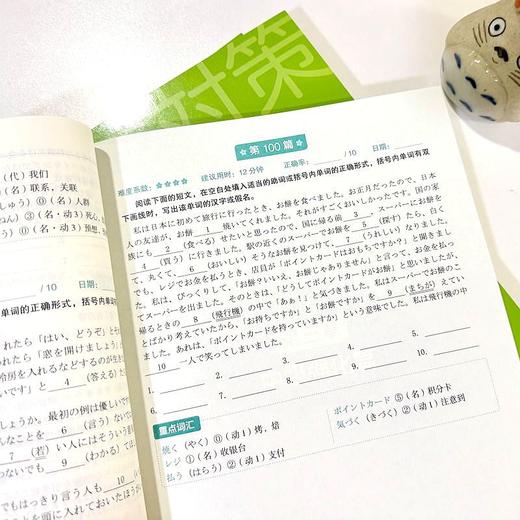 对策
(代) 我们
(名) 联系,关联
⓪(名) 人群
③(名・动3) 死心,
⓪(名・动3) 预想,
/10 日期:
单词的正确形式,括号内单
れたら「はい、どうぞ」とそ
われたら「窓を開けましょう」
冷房を入れるなどするのが生
いです」と 4 (答える) た
しょうか。最初の例は優しいで
んなことを 6 (言う) ないで
7 (若) い人にはそういう
わないでも 9 (わかる) ては
でもはっきり言う人も 10
ことを頭に入れておいたほうが
☆ 第 100 篇 ☆
难度系数:★★★★☆ 建议用时:12 分钟 正确率: /10 日期:
阅读下面的短文,在空白处填入适当的助词或括号内单词的正确形式,括号内单词有双
下画线时,写出该单词的汉字或假名。
私は日本に初めて旅行に行ったとき、お餅を食べました。お正月だったので、日本
人の友達が、お餅 1 焼いてくれました。それがすごくおいしかったです。国の家
族にも 2 (食べる) せたいと思ったので、国に帰る前 3 、スーパーにお餅を
4 (買う) に行きました。駅の近くのスーパーでお餅を 5 (探す) たら、白く
て、丸くて、 6 (おいしい) そうなお餅を見つけて、 7 (うれしい) なりました。
でも、レジでお金を払うとき、店員が「ポイントカードはおもちですか?」と聞きまし
た。私は、びっくりして、「お餅?いいえ、お餅じゃありません」と言って、お金を払っ
てスーパーを出ました。そのときは、「どうしてポイントカードがお餅」と思いましたが、
帰るときの 8 (飛行機) の中で「あぁ!」と気づきました。私はスーパーでお餅のこ
とばかり考えていたから、「お持ちですか」と「お餅ですか」を 9 (まちが) えてい
ました。あれは、「ポイントカードを持っていますか」という意味でした。私は飛行機の中
10 一人で笑ってしまいました。
1. 2. 3. 4. 5.
6. 7. 8. 9. 10.
重点词汇
焼く (やく) ⓪ (动1) 烤,焙
レジ ① (名) 收银台
払う (はらう) ② (动1) 支付
ポイントカード ⑤ (名) 积分卡
気づく (きづく) ② (动1) 注意到